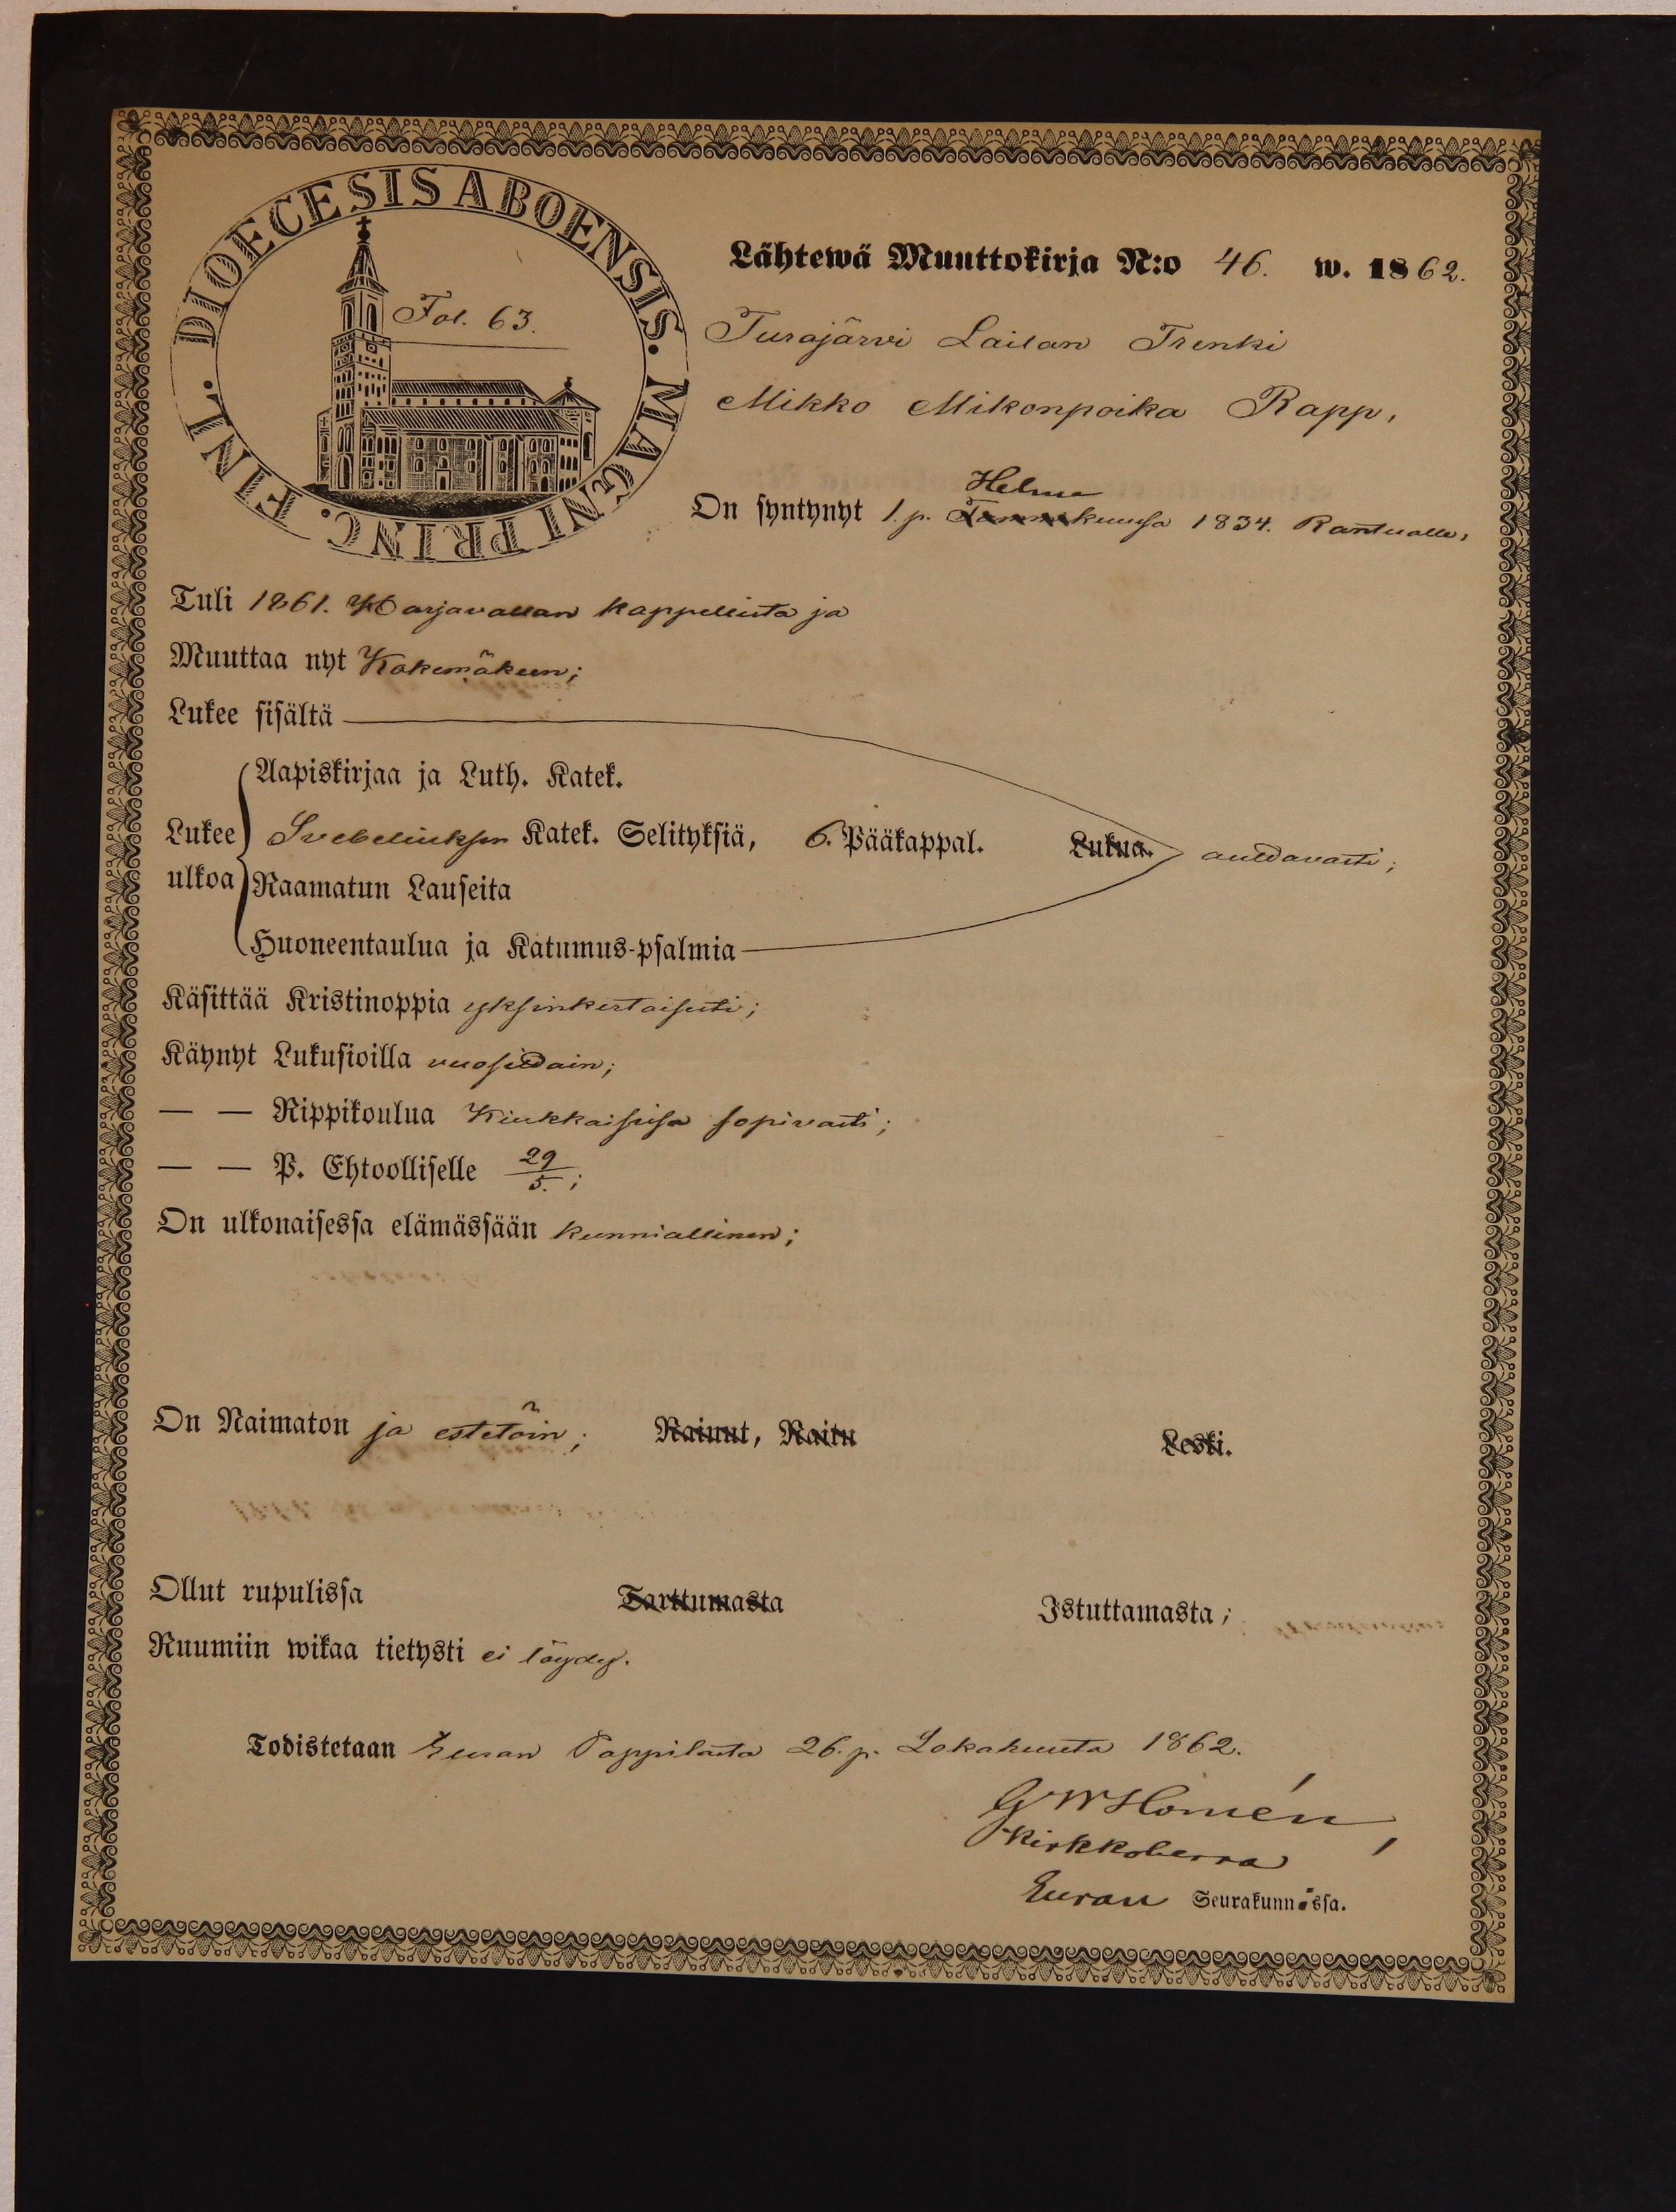 DIOECESIS ABOENSIS. MAGNI PRINC. FINL.
Fol. 63.
Lähtewä Muuttokirja N:o 46. w. 1862.
Turajärvi Lailan Trenki
Mikko Mikonpoika Rapp,
Helme
On syntynyt 1. p. Tammikuussa 1834.
Tuli 1861. Harjavallan kappelista ja
Muuttaa nyt Kokemäkeen;
Lukee sisältä
Aapiskirjaa ja Luth. Katek.
Lukee Svebeliuksen Katek. Selityksiä, 6. Pääkappal. Lukua. auttavasti;
ulkoa Raamatun Lauseita
Huoneentaulua ja Katumus-psalmia
Käsittää Kristinoppia yksinkertaisesti;
Käynyt Lukusioilla vuosittain;
— — Rippikoulua Kiukkaisissa sopivasti;
— — P. Ehtoolliselle 29/5.;
On ulkonaisessa elämässään kunniallinen;
On Naimaton ja estetöin; Nainut, Naitu Leski.
Ollut rupulissa Tarttumasta Istuttamasta;
Ruumiin wikaa tietysti ei löydy.
Todistetaan Euran Pappilasta 26. p. Lokakuuta 1862.
G W Homén,
Kirkkoherra
Euran Seurakunnassa.